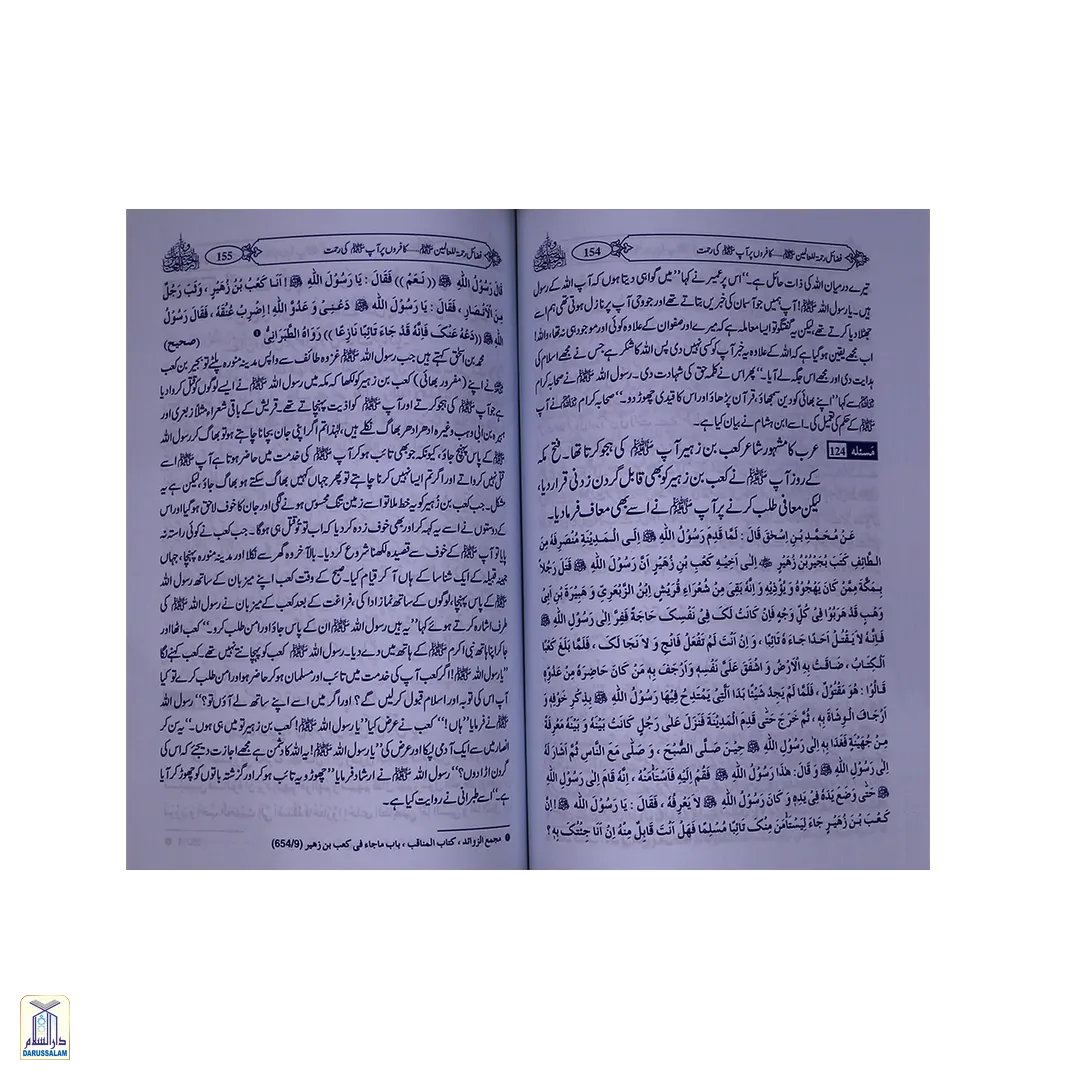 فضائل رحمۃ للعالمین ﷺ ..... کافروں پر آپ ﷺ کی رحمت
154
تیرے درمیان اللہ کی ذات حائل ہے۔“ اس پر عمیر نے کہا ”میں گواہی دیتا ہوں کہ آپ اللہ کے رسول
ہیں۔ یا رسول اللہ ﷺ! آپ ہمیں جو آسمان کی خبریں بتاتے تھے اور جو وحی آپ پر نازل ہوتی تھی ہم اسے
جھٹلا دیا کرتے تھے، لیکن یہ گفتگو تو ایسا معاملہ ہے کہ میرے اور صفوان کے علاوہ کوئی اور موجود ہی نہ تھا، واللہ!
اب مجھے یقین ہو گیا ہے کہ اللہ کے علاوہ یہ خبر آپ کو کسی نہیں دی پس اللہ کا شکر ہے جس نے مجھے اسلام کی
ہدایت دی اور مجھے اس جگہ لے آیا۔“ پھر اس نے کلمہ حق کی شہادت دی۔ رسول اللہ ﷺ نے صحابہ کرام
سے کہا ”اپنے بھائی کو دین سمجھاؤ، قرآن پڑھاؤ اور اس کا قیدی چھوڑ دو۔“ صحابہ کرام نے آپ
ﷺ کے حکم کی تعمیل کی۔ اسے ابن ہشام نے بیان کیا ہے۔
مسئلہ 124 عرب کا مشہور شاعر کعب بن زہیر آپ ﷺ کی ہجو کرتا تھا۔ فتح مکہ
کے روز آپ ﷺ نے کعب بن زہیر کو بھی قابل گردن زدنی قرار دیا،
لیکن معافی طلب کرنے پر آپ ﷺ نے اسے بھی معاف فرما دیا۔
عَنْ مُحَمَّدِ بْنِ إِسْحٰقَ قَالَ : لَمَّا قَدِمَ رَسُوْلُ اللّٰهِ ﷺ اِلَى الْمَدِيْنَةِ مُنْصَرِفَهُ مِنَ
الطَّائِفِ كَتَبَ بُجَيْرُ بْنُ زُهَيْرٍ ؓ اِلٰى اَخِيْهِ كَعْبِ بْنِ زُهَيْرٍ اَنَّ رَسُوْلَ اللّٰهِ ﷺ قَتَلَ رَجُلاً
بِمَكَّةَ مِمَّنْ كَانَ يَهْجُوْهُ وَ يُؤْذِيْهِ وَ اِنَّهُ بَقِيَ مِنْ شُعَرَاءِ قُرَيْشٍ اِبْنُ الزَّبْعَرِي وَ هَبِيْرَةَ بْنِ اَبِيْ
وَهَبٍ قَدْ هَرَبُوْا فِيْ كُلِّ وَجْهٍ فَاِنْ كَانَتْ لَكَ فِيْ نَفْسِكَ حَاجَةٌ فَفِرَّ اِلٰى رَسُوْلِ اللّٰهِ ﷺ
فَاِنَّهُ لاَ يَقْتُلُ اَحَدًا جَاءَهُ تَائِبًا ، وَ اِنْ اَنْتَ لَمْ تَفْعَلْ فَانْجُ وَ لاَ نَجَا لَكَ ، فَلَمَّا بَلَغَ كَعْبًا
الْكِتَابُ ، ضَاقَتْ بِهِ الْاَرْضُ وَ اَشْفَقَ عَلٰى نَفْسِهِ وَ اَرْجَفَ بِهِ مَنْ كَانَ حَاضِرَهُ مِنْ عَدُوِّهِ
قَالُوْا : هُوَ مَقْتُوْلٌ ، فَلَمَّا لَمْ يَجِدْ شَيْئًا بَدَا الَّتِيْ يَمْتَدِحُ فِيْهَا رَسُوْلَ اللّٰهِ ﷺ بِذِكْرِ خَوْفِهِ وَ
اَرْجَافَ الْوِشَاةِ بِهِ ، ثُمَّ خَرَجَ حَتّٰى قَدِمَ الْمَدِيْنَةَ فَنَزَلَ عَلٰى رَجُلٍ كَانَتْ بَيْنَهُ وَ بَيْنَهُ مَعْرِفَةٌ
مِنْ جُهَيْنَةٍ فَغَدَا بِهِ اِلٰى رَسُوْلِ اللّٰهِ ﷺ حِيْنَ صَلَّى الصُّبْحَ ، وَ صَلّٰى مَعَ النَّاسِ ثُمَّ اَشَارَ لَهُ
اِلٰى رَسُوْلِ اللّٰهِ ﷺ وَ قَالَ : هٰذَا رَسُوْلُ اللّٰهِ ﷺ فَقُمْ اِلَيْهِ فَاسْتَأْمَنَهُ ، اِنَّهُ قَامَ اِلٰى رَسُوْلِ اللّٰهِ
ﷺ حَتّٰى وَضَعَ يَدَهُ فِيْ يَدِهِ وَ كَانَ رَسُوْلُ اللّٰهِ ﷺ لاَ يَعْرِفُهُ ، فَقَالَ : يَا رَسُوْلَ اللّٰهِ ﷺ ! اِنَّ
كَعْبَ بْنَ زُهَيْرٍ جَاءَ لِيَسْتَأْمَنَ مِنْكَ تَائِبًا مُسْلِمًا فَهَلْ اَنْتَ قَابِلٌ مِنْهُ اِنْ اَنَا جِئْتُكَ بِهِ ؟
فضائل رحمۃ للعالمین ﷺ ..... کافروں پر آپ ﷺ کی رحمت
155
قَالَ رَسُوْلُ اللّٰهِ ﷺ (( نَعَمْ )) فَقَالَ : يَا رَسُوْلَ اللّٰهِ ﷺ ! اَنَا كَعْبُ بْنُ زُهَيْرٍ ، وَثَبَ رَجُلٌ
مِنَ الْاَنْصَارِ ، فَقَالَ : يَا رَسُوْلَ اللّٰهِ ﷺ دَعْنِيْ وَ عَدُوَّ اللّٰهِ ! اِضْرِبْ عُنُقَهُ ، فَقَالَ رَسُوْلُ
اللّٰهِ ﷺ (( دَعْهُ عَنْكَ فَاِنَّهُ قَدْ جَاءَ تَائِبًا نَازِعًا )) رَوَاهُ الطَّبَرَانِيُّ ❶ (صحیح)
محمد بن اسحٰق کہتے ہیں جب رسول اللہ ﷺ غزوہ طائف سے واپس مدینہ منورہ پلٹے تو بجیر بن کعب
نے اپنے (مفرور بھائی) کعب بن زہیر کو لکھا کہ مکہ میں رسول اللہ ﷺ نے ایسے لوگوں کو قتل کروا دیا
ہے جو آپ ﷺ کی ہجو کرتے اور آپ ﷺ کو اذیت پہنچاتے تھے۔ قریش کے باقی شعراء مثلاً زبعری اور
ہبیرہ بن ابی وہب وغیرہ ادھر ادھر بھاگ نکلے ہیں، لہٰذا تم اگر اپنی جان بچانا چاہتے ہو تو بھاگ کر رسول اللہ
ﷺ کے پاس پہنچ جاؤ، کیونکہ جو بھی تائب ہو کر آپ ﷺ کی خدمت میں حاضر ہوتا ہے آپ ﷺ اسے
قتل نہیں کرواتے اور اگر تم ایسا نہیں کرنا چاہتے تو پھر جہاں کہیں بھاگ سکتے ہو بھاگ جاؤ، لیکن ہے یہ
مشکل۔ جب کعب بن زہیر کو یہ خط ملا تو اسے زمین تنگ محسوس ہونے لگی اور جان کا خوف لاحق ہو گیا اور اس
کے دوستوں نے اسے یہ کہہ کر اور بھی خوف زدہ کر دیا کہ اب تو تو قتل ہی ہوگا۔ جب کعب نے کوئی راستہ نہ
پایا تو آپ ﷺ کے خوف سے قصیدہ لکھنا شروع کر دیا۔ بالآخر وہ گھر سے نکلا اور مدینہ منورہ پہنچا، جہاں
جہینہ قبیلہ کے ایک شناسا کے ہاں آ کر قیام کیا۔ صبح کے وقت کعب اپنے میزبان کے ساتھ رسول اللہ
ﷺ کے پاس پہنچا، لوگوں کے ساتھ نماز ادا کی، فراغت کے بعد کعب کے میزبان نے رسول اللہ ﷺ کی
طرف اشارہ کرتے ہوئے کہا ”یہ ہیں رسول اللہ ﷺ ان کے پاس جاؤ اور امن طلب کرو۔“ کعب اٹھا اور
جا کر اپنا ہاتھ نبی اکرم ﷺ کے ہاتھ میں دے دیا۔ رسول اللہ ﷺ کعب کو پہچانتے نہیں تھے۔ کعب کہنے لگا
”یا رسول اللہ ﷺ! اگر کعب آپ کی خدمت میں تائب اور مسلمان ہو کر حاضر ہو اور امن طلب کرے تو کیا
آپ اس کی توبہ اور اسلام قبول کر لیں گے؟ اور اگر میں اسے اپنے ساتھ لے آؤں تو؟“ رسول اللہ
ﷺ نے فرمایا ”ہاں!“ کعب نے عرض کیا ”یا رسول اللہ ﷺ! کعب بن زہیر تو میں ہی ہوں۔“ یہ سن کر
انصار میں سے ایک آدمی لپکا اور عرض کی ”یا رسول اللہ ﷺ! یہ اللہ کا دشمن ہے مجھے اجازت دیجئے کہ اس کی
گردن اڑا دوں؟“ رسول اللہ ﷺ نے ارشاد فرمایا ”چھوڑو یہ تائب ہو کر اور گزشتہ باتوں کو چھوڑ کر آیا
ہے۔“ اسے طبرانی نے روایت کیا ہے۔
❶ مجمع الزوائد ، کتاب المناقب ، باب ماجاء فی کعب بن زهیر (654/9)
دارالسلام
DARUSSALAM